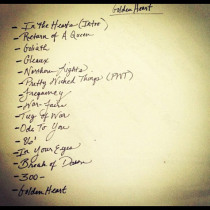 Golden Heart
- In The Hearts (Intro)
- Return of A Queen
- Goliath
- Gleaux
- Northern Lights
- Pretty Wicked Things (PWT)
- Frequency
- War Fare
- Tug of War
- Ode To You
- 86'
- In Your Eyes
- Break of Dawn
- 300 -
- Golden Heart